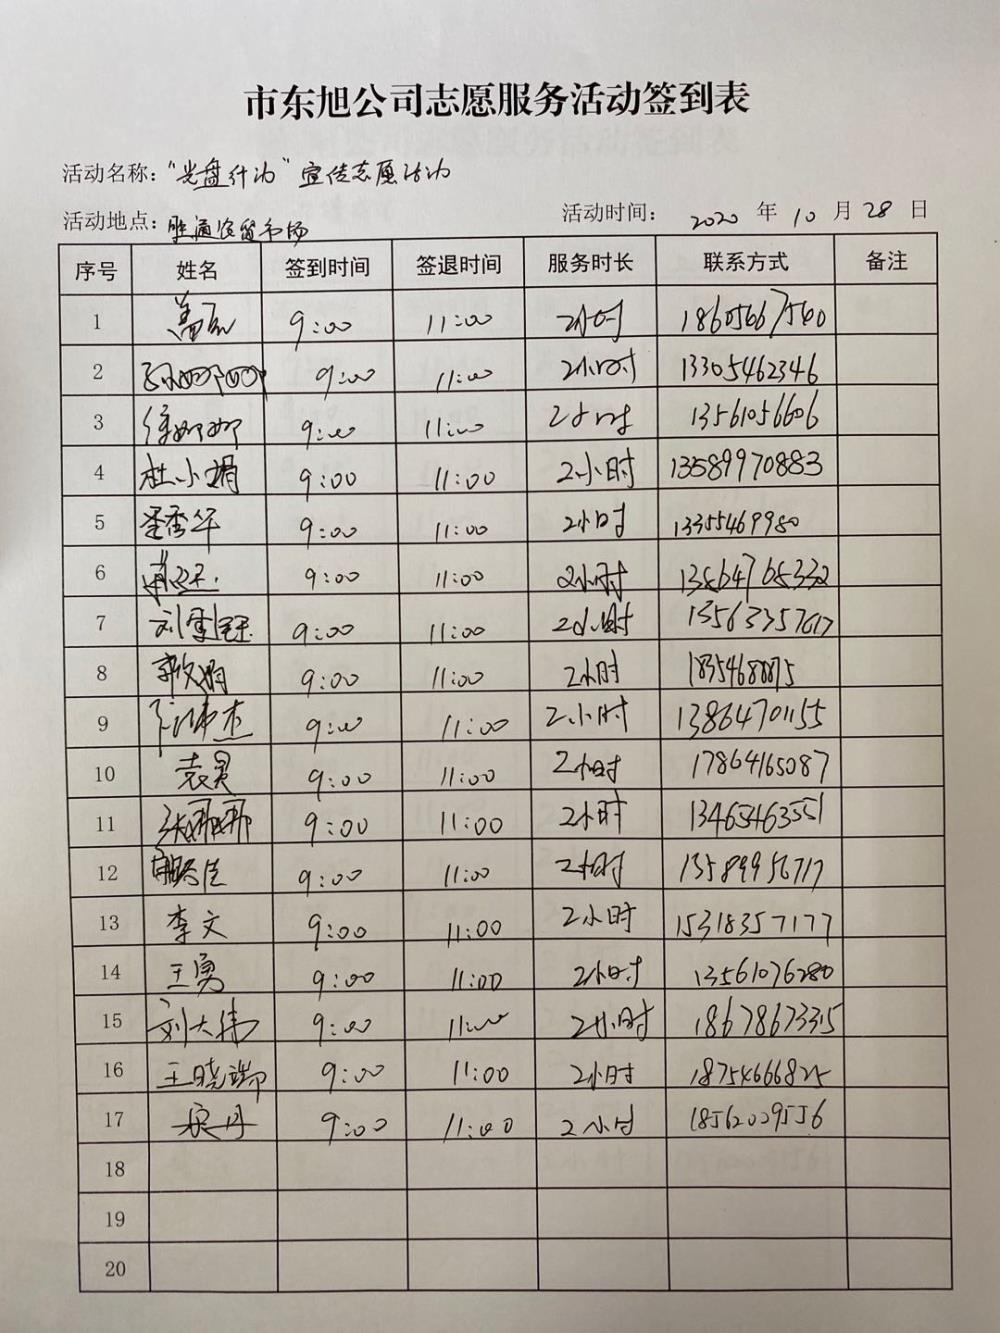 市东旭公司志愿服务活动签到表
活动名称："光盘行动"宣传志愿活动
活动地点：胜通农贸市场 活动时间： 2020 年 10 月 28 日
序号 姓名 签到时间 签退时间 服务时长 联系方式 备注
1 9:00 11:00 2小时 18605667560
2 9:00 11:00 2小时 13305462346
3 徐娜娜 9:00 11:00 2小时 13561056606
4 杜小娟 9:00 11:00 2小时 13589970883
5 董秀华 9:00 11:00 2小时 13355469980
6 9:00 11:00 2小时 13564765332
7 刘雪 9:00 11:00 2小时 13563357617
8 郭文娟 9:00 11:00 2小时
9 9:00 11:00 2小时 13864701155
10 袁昊 9:00 11:00 2小时 17864165087
11 张娜娜 9:00 11:00 2小时 13465463551
12 9:00 11:00 2小时 13589956717
13 李文 9:00 11:00 2小时 15318357177
14 王勇 9:00 11:00 2小时 13561076280
15 刘大伟 9:00 11:00 2小时 18678673315
16 王晓端 9:00 11:00 2小时 18754666825
17 9:00 11:00 2小时 18562009556
18
19
20